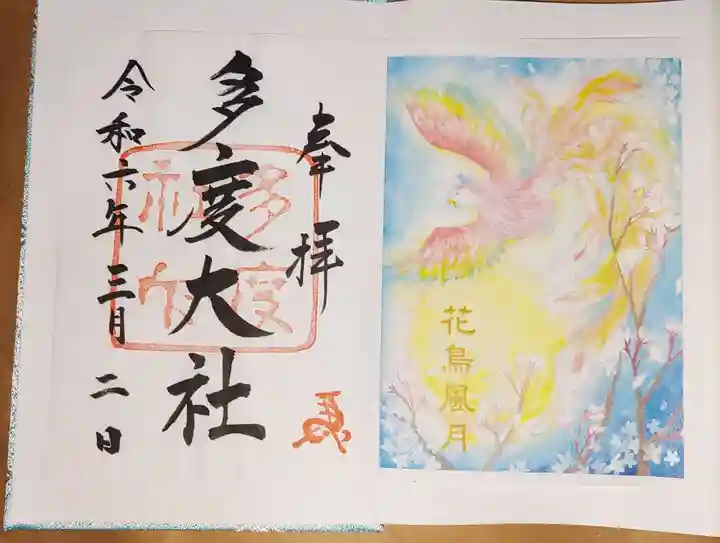 花鳥風月
奉拝
多度大社
多度
神社
令和六年三月二日